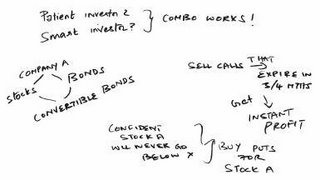 Patient investor?
Smart investor?
COMBO WORKS!
COMPANY A
STOCKS
BONDS
CONVERTIBLE BONDS
SELL CALLS THAT
EXPIRE IN
3/4 MTHS
Get
INSTANT
PROFIT
CONFIDENT
STOCK A
WILL NEVER GO
BELOW X
BUY PUTS
FOR
STOCK A